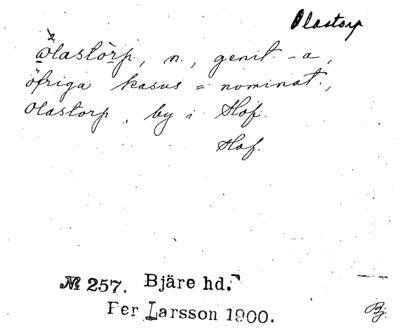 Olastorp
òlastòrp, n., genit -a,
öfriga kasus = nominat.,
Olastorp, by i Hof.
Hof.
№ 257. Bjäre hd.
Per Larsson 1900.
Bj.